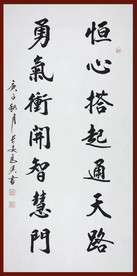 恒心搭起通天路
勇氣衝開智慧門
庚子秋月